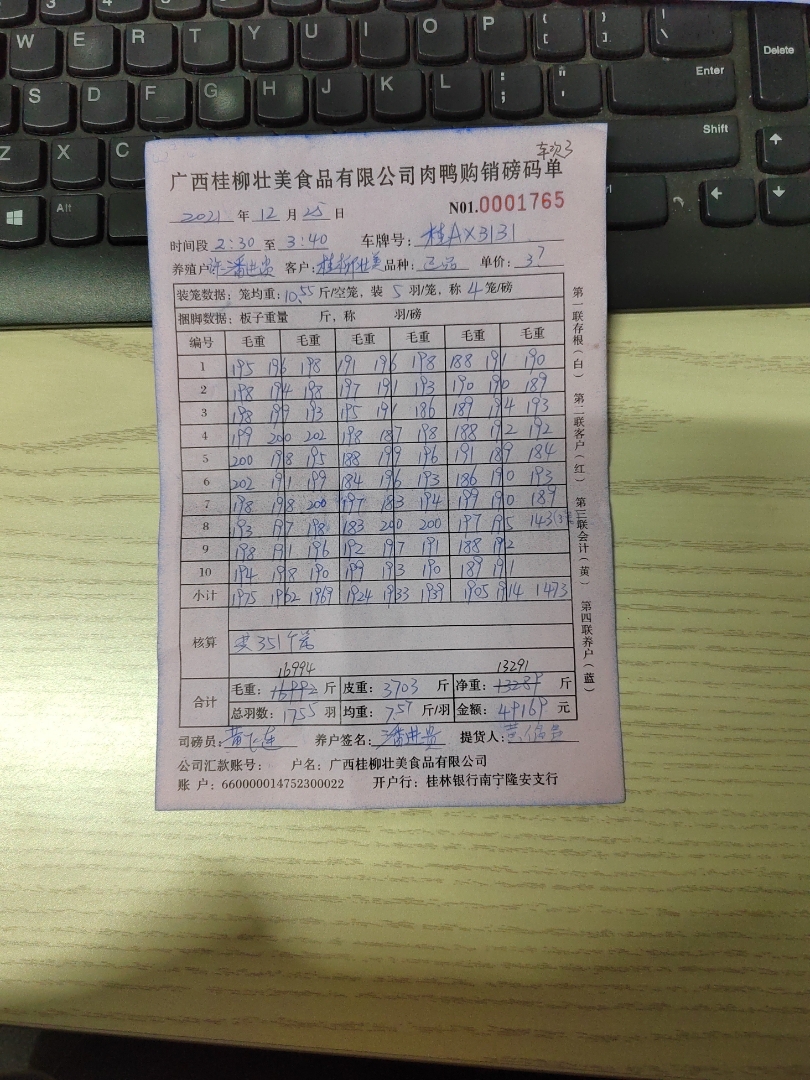 W E R T Y U I O P { [ } ] | \ Delete
S D F G H J K L : ; " Enter
Z X C Shift
Alt
车次3
广西桂柳壮美食品有限公司肉鸭购销磅码单
2021 年 12 月 25 日 N01.0001765
时间段 2:30 至 3:40 车牌号: 桂AX3131
养殖户 潘进贵 客户: 桂柳壮美 品种: 单价: 37
装笼数据: 笼均重: 10.55 斤/空笼, 装 5 羽/笼, 称 4 笼/磅
捆脚数据: 板子重量 斤, 称 羽/磅
编号 毛重 毛重 毛重 毛重 毛重 毛重
1 195 196 198 191 196 198 188 191 190
2 198 194 198 197 191 193 190 190 189
3 198 199 193 195 191 186 189 194 193
4 199 200 202 198 187 198 188 192 192
5 200 198 195 188 199 196 191 189 184
6 202 191 199 184 196 193 186 190 193
7 198 198 200 197 183 194 199 190 189
8 193 197 198 183 200 200 197 195 143
9 198 191 196 192 197 191 188 192
10 194 198 190 199 193 190 189 191
小计 1975 1962 1969 1924 1933 1939 1905 1914 1473
核算 共351个笼
16994 13291
合计 毛重: 16992 斤 皮重: 3703 斤 净重: 13289 斤
总羽数: 1755 羽 均重: 7.57 斤/羽 金额: 49169 元
司磅员: 黄飞连 养户签名: 潘进贵 提货人:
公司汇款账号: 户名: 广西桂柳壮美食品有限公司
账 户: 660000014752300022 开户行: 桂林银行南宁隆安支行
第一联存根(白) 第二联客户(红) 第三联会计(黄) 第四联养户(蓝)